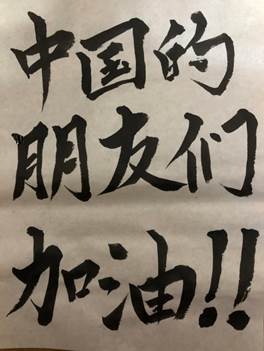 中国的
朋友们
加油!!